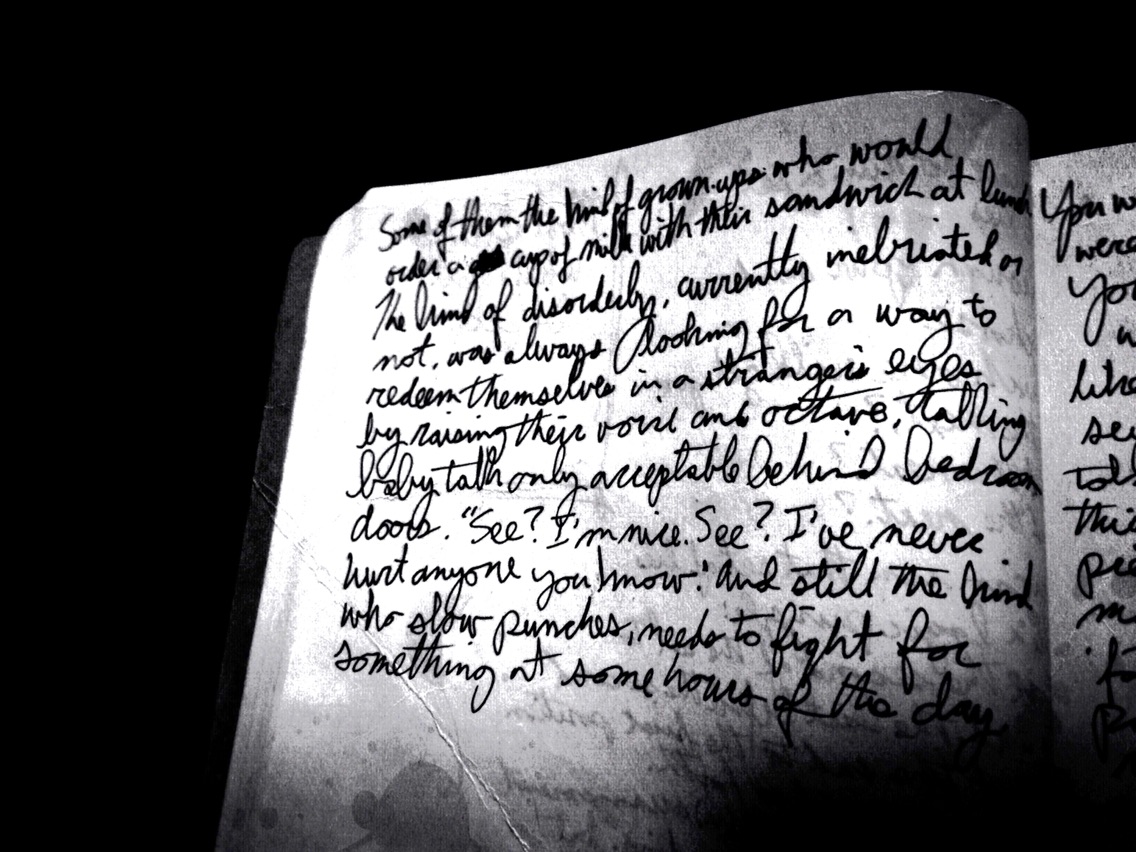 Some of them the kind of grown-ups who would
order a cup of milk with their sandwich at lunch
The kind of disorderly, currently inebriated or
not, was always looking for a way to
redeem themselves in a stranger's eyes
by raising their voice one octave, talking
baby talk only acceptable behind bedroom
doors. "See? I'm nice. See? I've never
hurt anyone you know." And still the kind
who slow punches, needs to fight for
something at some hours of the day.
You
were
You
like